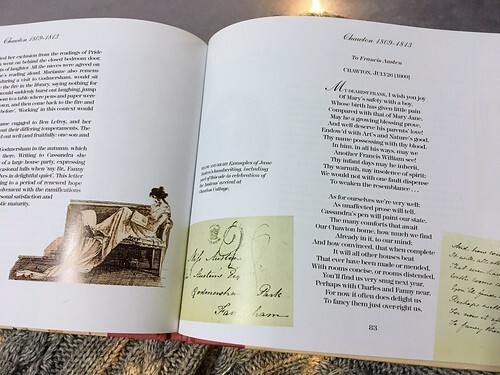 Chawton 1809-1813
ted her exclusion from the readings of Pride
went on behind the closed bedroom door,
ts of laughter. All the nieces were agreed on
e's reading aloud. Marianne also remem-
during a visit to Godmersham, would sit
the fire in the library, saying nothing for
would suddenly burst out laughing, jump
oss to a table where pens and paper were
own, and then come back to the fire and
before'. 'Working' in this context would
ame engaged to Ben Lefroy, and her
out their differing temperaments. The
ed out well (and fruitfully: one son and
Godmersham in the autumn, which
there. Writing to Cassandra she
e of a large house party, expressing
casional lulls when 'my Br., Fanny
lves in delightful quiet'. This letter
ing to a period of renewed hope
nvolvement with the ramifications
personal satisfaction and
stic maturity.
BELOW AND RIGHT Examples of Jane
Austen's handwriting, including
part of this ode in celebration of
the Austens' arrival at
Chawton Cottage.
Miss Austen
Godmersham Park
Faversham
Chawton 1809-1813
To Francis Austen
CHAWTON, JULY 26 [1809]
MY DEAREST FRANK, I wish you joy
Of Mary's safety with a boy,
Whose birth has given little pain
Compared with that of Mary Jane.
May he a growing blessing prove,
And well deserve his parents' love!
Endow'd with Art's and Nature's good,
Thy name possessing with thy blood,
In him, in all his ways, may we
Another Francis William see!
Thy infant days may he inherit,
Thy warmth, nay insolence of spirit;
We would not with one fault dispense
To weaken the resemblance ...
As for ourselves we're very well;
As unaffected prose will tell.
Cassandra's pen will paint our state,
The many comforts that await
Our Chawton home, how much we find
Already in it, to our mind;
And how convinced, that when complete
It will all other houses beat
That ever have been made or mended,
With rooms concise, or rooms distended.
You'll find us very snug next year,
Perhaps with Charles and Fanny near,
For now it often does delight us
To fancy them just over-right us.
83
And how con
It will all oth
That ever ha
With rooms
You'll find
Perhaps with
For now it o
To fancy them